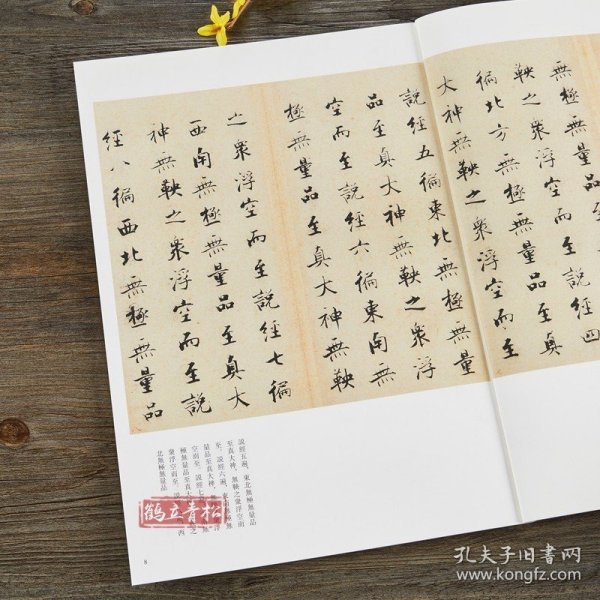 無極無量品
鞅之眾浮空而至說經四
徧北方無極無量品至真
大神無鞅之眾浮空而至
說經五徧東北無極無量
品至真大神無鞅之眾浮
空而至說經六徧東南無
極無量品至真大神無鞅
之眾浮空而至說經七徧
西南無極無量品至真大
神無鞅之眾浮空而至說
經八徧西北無極無量品
說經五遍、東北無極無量品
至真大神、無鞅之衆浮空而
至、說經六遍、
量品至真大神、
空而至、說經七
極無量品至真大
衆浮空而至、說 西
北無極無量品
8
鹤立青松
孔夫子旧書网
www.kongfz.com